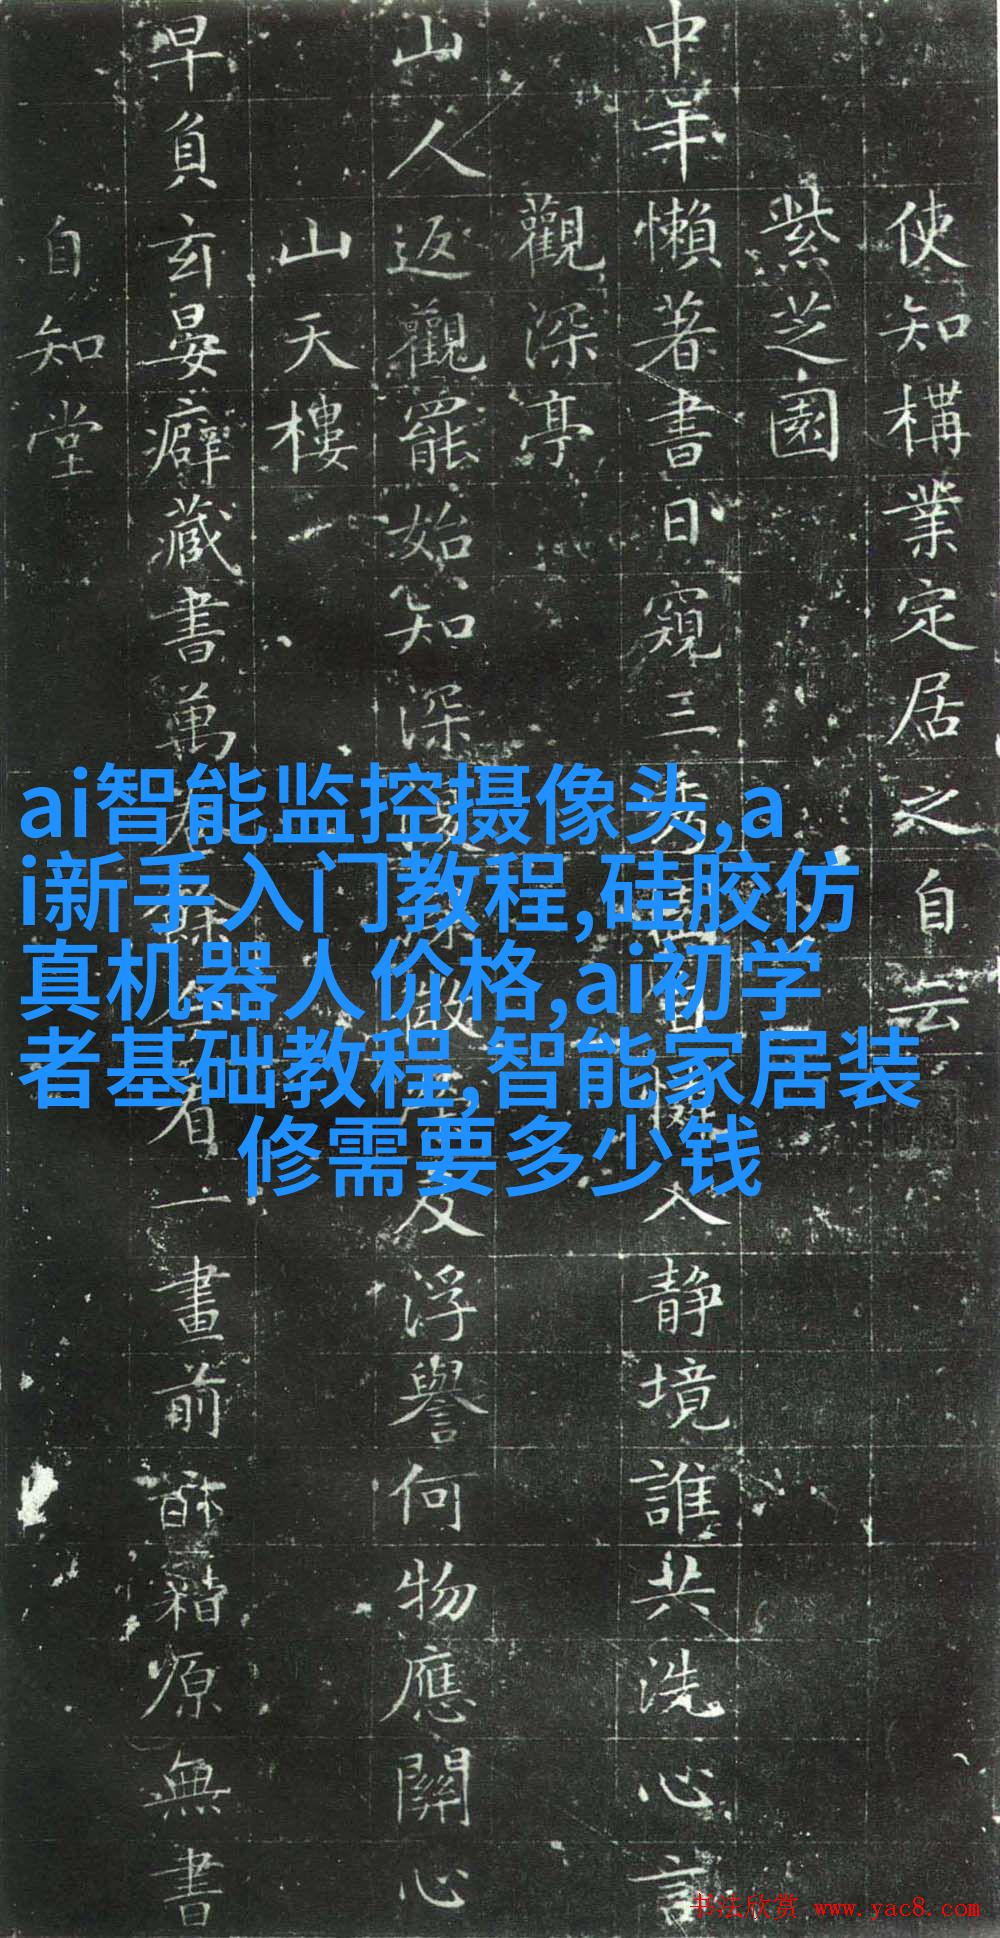 使知構業定居之自云
紫芝園
中年懶著書日窺三入靜境誰共洗心言
觀深亭
山人返觀罷始知深及浮譽何物應關心
山天樓
早負玄晏癖藏書萬看一畫前籍原無書
自知堂
ai智能监控摄像头,a
i新手入门教程,硅胶仿
真机器人价格,ai初学
者基础教程,智能家居装
修需要多少钱
书法欣赏 www.yac8.com